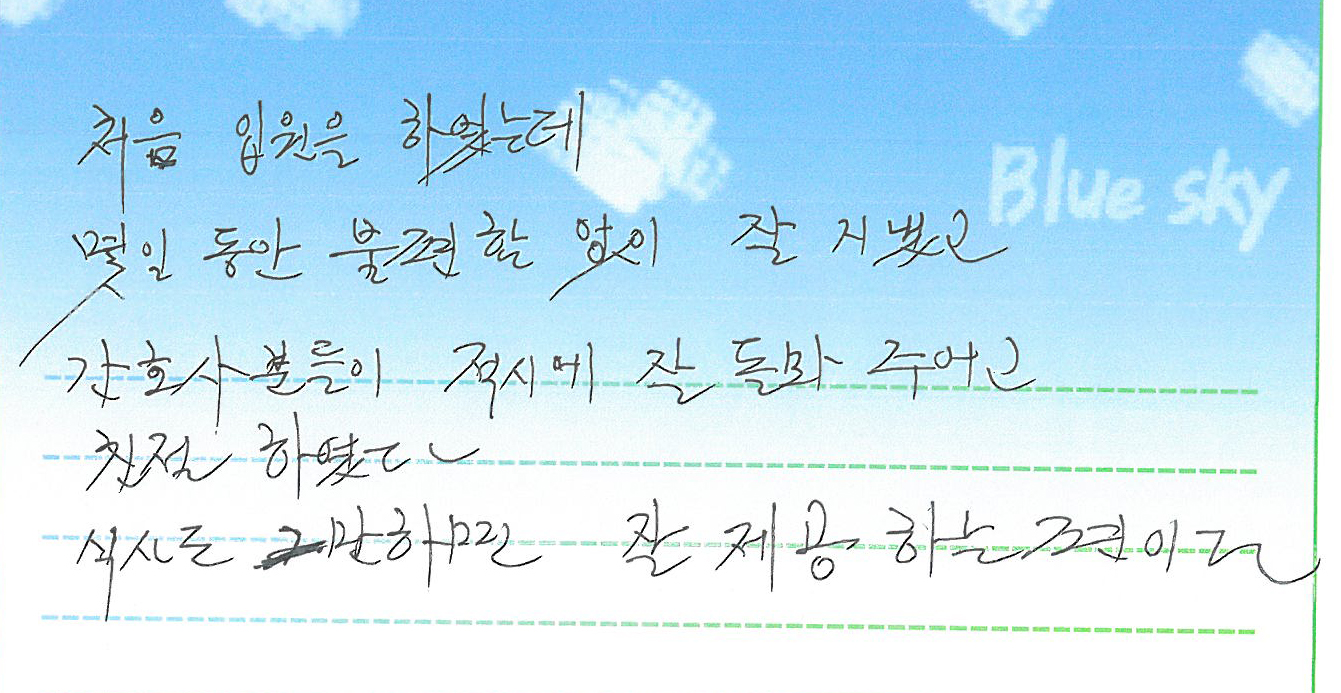 Blue sky
처음 입원을 하였는데
몇일 동안 불편함 없이 잘 지냈고
간호사분들이 적시에 잘 돌봐 주어고
친절 하였다
식사도 이만하면 잘 제공 하는편이다